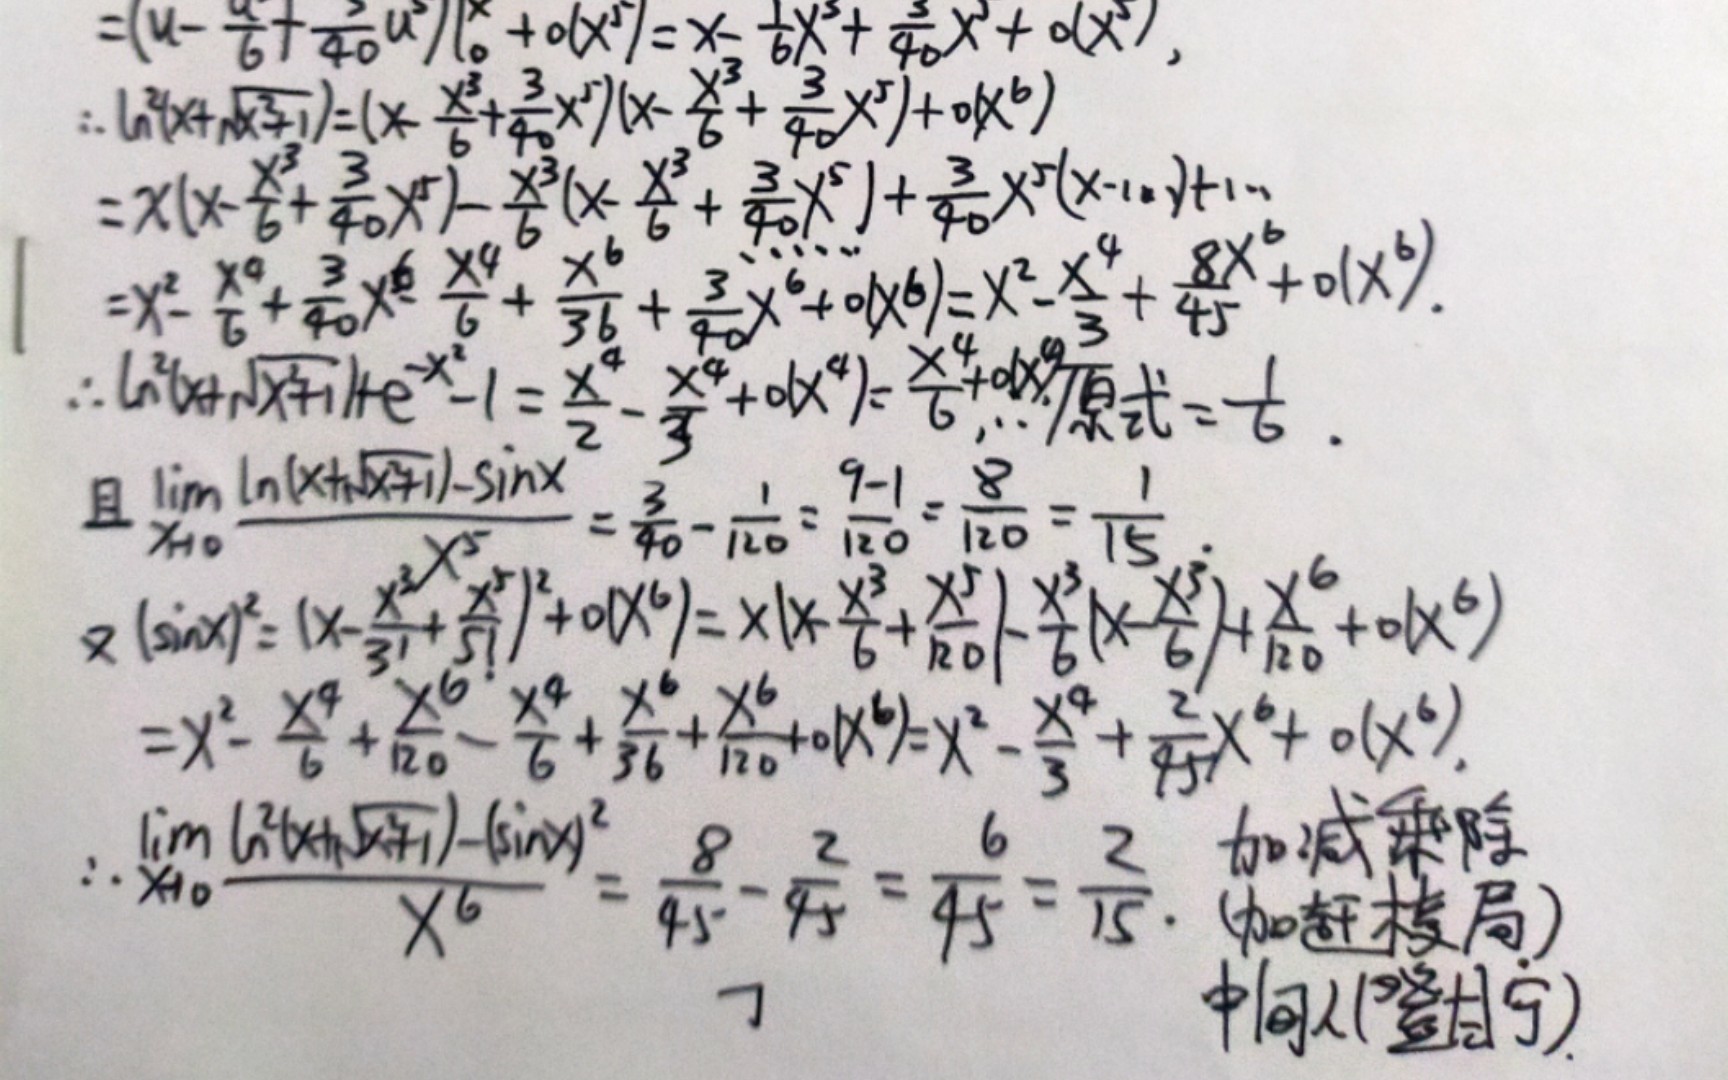 =(u-u³/6+3/40u⁵)|₀ˣ+o(x⁵)=x-1/6x³+3/40x⁵+o(x⁵),
∴ln²(x+√(x²+1))=(x-x³/6+3/40x⁵)(x-x³/6+3/40x⁵)+o(x⁶)
=x(x-x³/6+3/40x⁵)-x³/6(x-x³/6+3/40x⁵)+3/40x⁵(x-...)+...
=x²-x⁴/6+3/40x⁶-x⁴/6+x⁶/36+3/40x⁶+o(x⁶)=x²-x⁴/3+8x⁶/45+o(x⁶).
∴ln²(x+√(x²+1))+e^(-x²)-1=x⁴/2-x⁴/3+o(x⁴)=x⁴/6+o(x⁴),∴原式=1/6.
且 lim x→0 (ln(x+√(x²+1))-sinx)/x⁵=3/40-1/120=(9-1)/120=8/120=1/15.
又(sinx)²=(x-x³/3!+x⁵/5!)²+o(x⁶)=x(x-x³/6+x⁵/120)-x³/6(x-x³/6)+x⁶/120+o(x⁶)
=x²-x⁴/6+x⁶/120-x⁴/6+x⁶/36+x⁶/120+o(x⁶)=x²-x⁴/3+2/45x⁶+o(x⁶).
∴lim x→0 (ln²(x+√(x²+1))-(sinx)²)/x⁶=8/45-2/45=6/45=2/15.
加减乘除
(加赶楼局)
中间人(